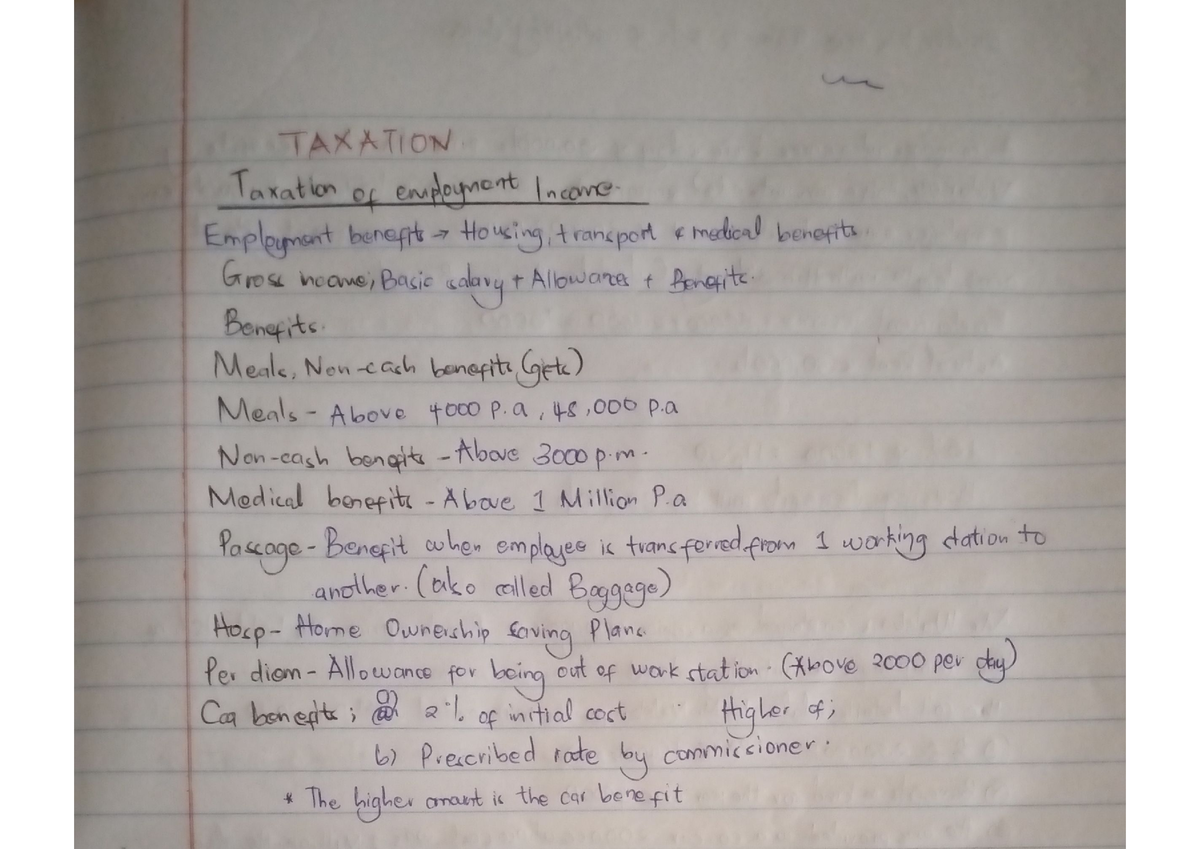 TAXATION
Taxation of employment Income.
Employment benefits → Housing, transport & medical benefits.
Gross income; Basic salary + Allowances + Benefits.
Benefits.
Meals, Non-cash benefits (gifts)
Meals - Above 4000 p.a, 48,000 p.a
Non-cash benefits - Above 3000 p.m.
Medical benefits - Above 1 Million P.a
Passage - Benefit when employee is transferred from 1 working station to
another. (also called Baggage)
Hosp - Home Ownership Saving Plans
Per diem - Allowance for being out of work station. (Above 2000 per day)
Car benefits; a) 2% of initial cost Higher of;
b) Prescribed rate by commissioner.
* The higher amount is the car benefit